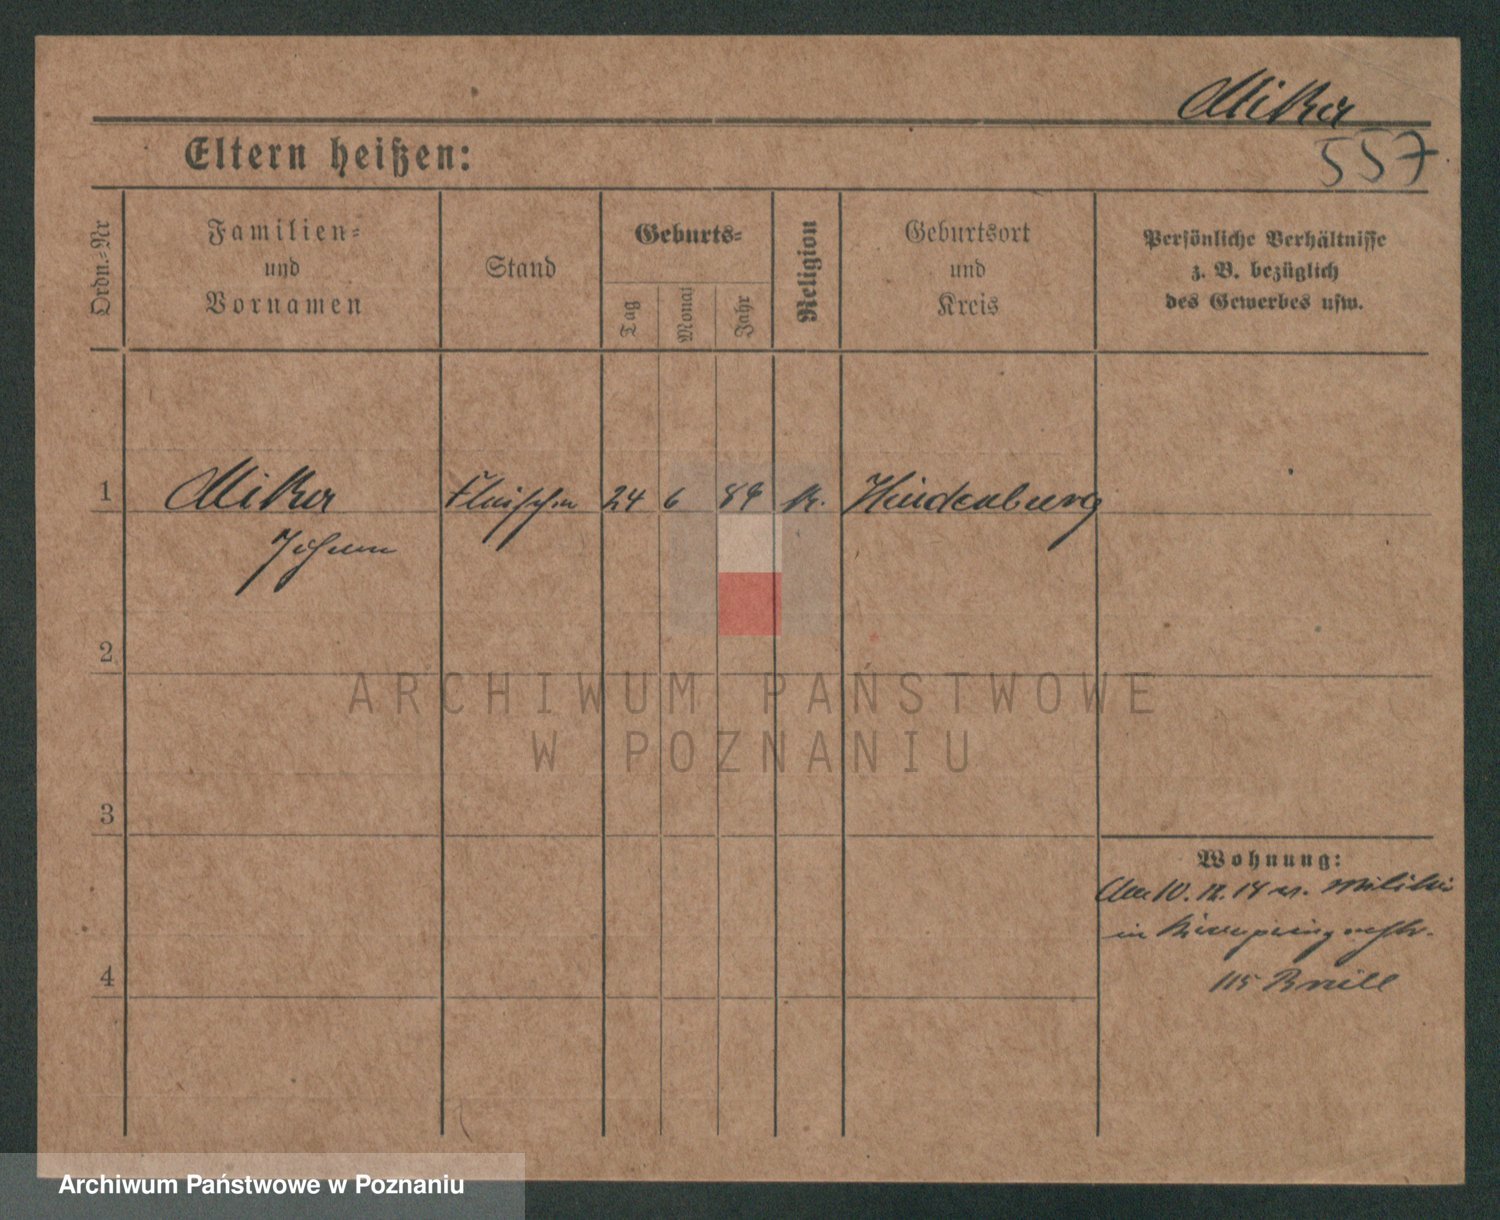 Miker
557
Eltern heißen:
Ordn.-Nr
Familien-
und
Vornamen
Stand
Geburts-
Tag
Monat
Jahr
Religion
Geburtsort
und
Kreis
Persönliche Verhältnisse
z. B. bezüglich
des Gewerbes usw.
1
Miker Fleischer 24 6 84 k. Hindenburg
Johann
2
3
4
ARCHIWUM PAŃSTWOWE
W POZNANIU
Wohnung:
10. 12. 14 Militär
in
115
Archiwum Państwowe w Poznaniu